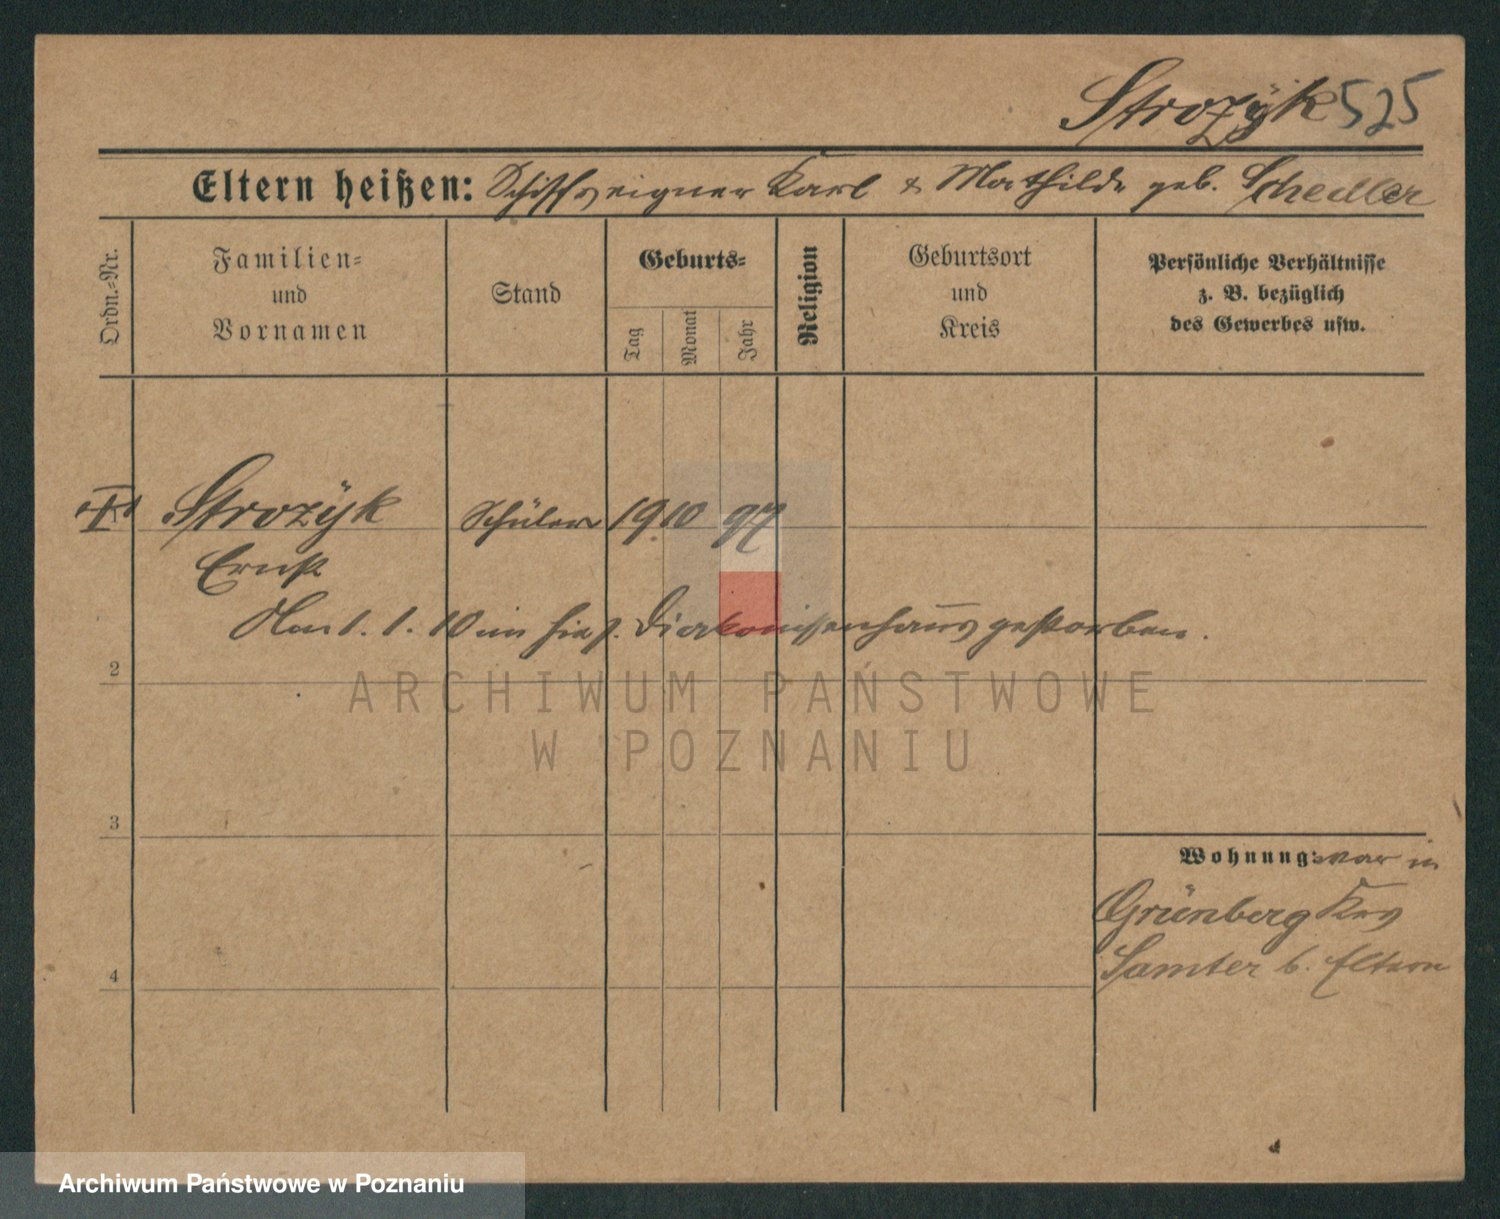 Strozÿk 525
Eltern heißen: Schiffseigner Karl & Mathilde geb. Schedler
Ordn.-Nr.
Familien-
und
Vornamen
Stand
Geburts-
Tag
Monat
Jahr
Religion
Geburtsort
und
Kreis
Persönliche Verhältnisse
z. B. bezüglich
des Gewerbes usw.
Strozÿk Schüler 19. 10 97
Ernst
Am 1. 1. 10 im hies. Diakonissenhaus gestorben.
2
ARCHIWUM PAŃSTWOWE
W POZNANIU
3
Wohnung: war in
Grünberg Krs
Samter b. Eltern
4
Archiwum Państwowe w Poznaniu